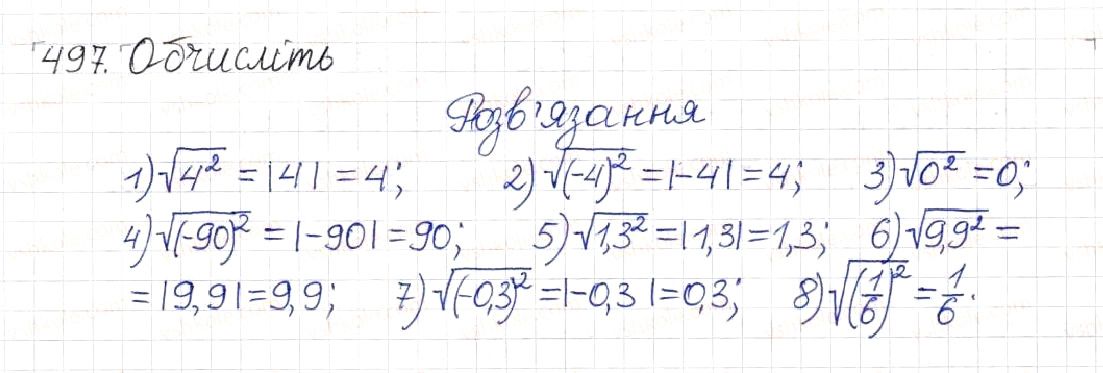 497. Обчисліть
Розв'язання
1) √4² = |4| = 4; 2) √(-4)² = |-4| = 4; 3) √0² = 0;
4) √(-90)² = |-90| = 90; 5) √1,3² = |1,3| = 1,3; 6) √9,9² =
= |9,9| = 9,9; 7) √(-0,3)² = |-0,3| = 0,3; 8) √(1/6)² = 1/6.